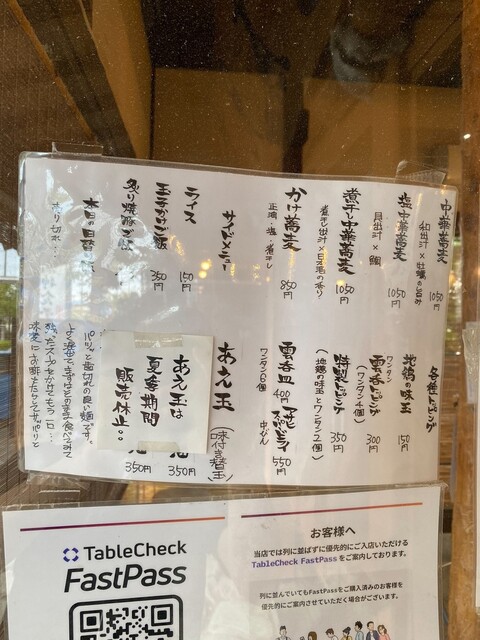 中華蕎麦
和出汁×牡蠣の旨み
1050円
塩中華蕎麦
貝出汁×鯛
1050円
煮干中華蕎麦
煮干し出汁×日本海の香り
1050円
かけ蕎麦
正油・塩・煮干し
850円
サイドメニュー
ライス
150円
玉子かけご飯
350円
炙り焼豚ご飯
本日の日替
売り切れ
各種トッピング
地鶏の味玉
150円
ワンタン
雲呑トッピング
(ワンタン4個)
300円
特製トッピング
(地鶏の味玉とワンタン2個)
350円
雲呑皿
ワンタン6個
400円
中びん
550円
あえ玉
(味付き替玉)
あえ玉は
夏季期間
販売休止。。
350円
350円
パツッと歯切れの良い麺です。
よく混ぜて、まずはそのまま食べてみて
TableCheck
FastPass
お客様へ
当店では列に並ばずに優先的にご入店いただける
TableCheck FastPassをご案内しております。
列に並んでいてもFastPassをご購入済みのお客様を
優先的にご案内させていただく場合がございます。